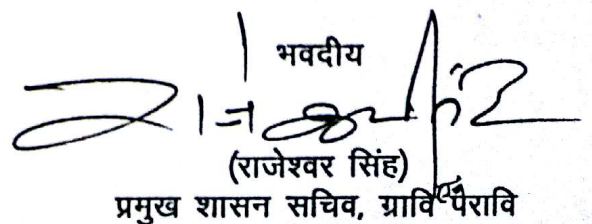 भवदीय
(राजेश्वर सिंह)
प्रमुख शासन सचिव, ग्रावि एवं पंरावि